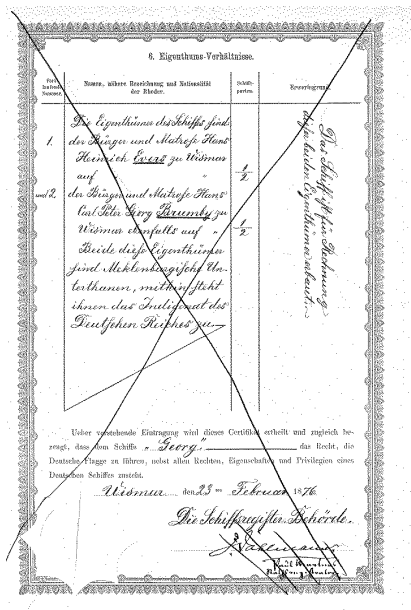 6. Eigenthums-Verhältnisse.
Fort-
laufende
Nummer.
Namen, nähere Bezeichnung und Nationalität
der Rheder.
Schiffs-
parten.
Erwerbsgrund.
Die Eigenthümer des Schiffs sind
1. der Bürger und Matrose Hans
Heinrich Evers zu Wismar
auf " 1/2
und 2. der Bürger und Matrose Hans
Carl Peter Georg Brumby zu
Wismar ebenfalls auf " 1/2
Beide diese Eigenthümer
sind Meklenburgische Un-
terthanen, mithin steht
ihnen das Indigenat des
Deutschen Reiches zu
Das Schiff ist für Rechnung
dieser beiden Eigenthümer erbaut.
Ueber vorstehende Eintragung wird dieses Certifikat ertheilt und zugleich be-
zeugt, dass dem Schiffe „Georg" das Recht, die
Deutsche Flagge zu führen, nebst allen Rechten, Eigenschaften und Privilegien eines
Deutschen Schiffes zusteht.
Wismar den 23 ten Februar 1876
Die Schiffsregister-Behörde.